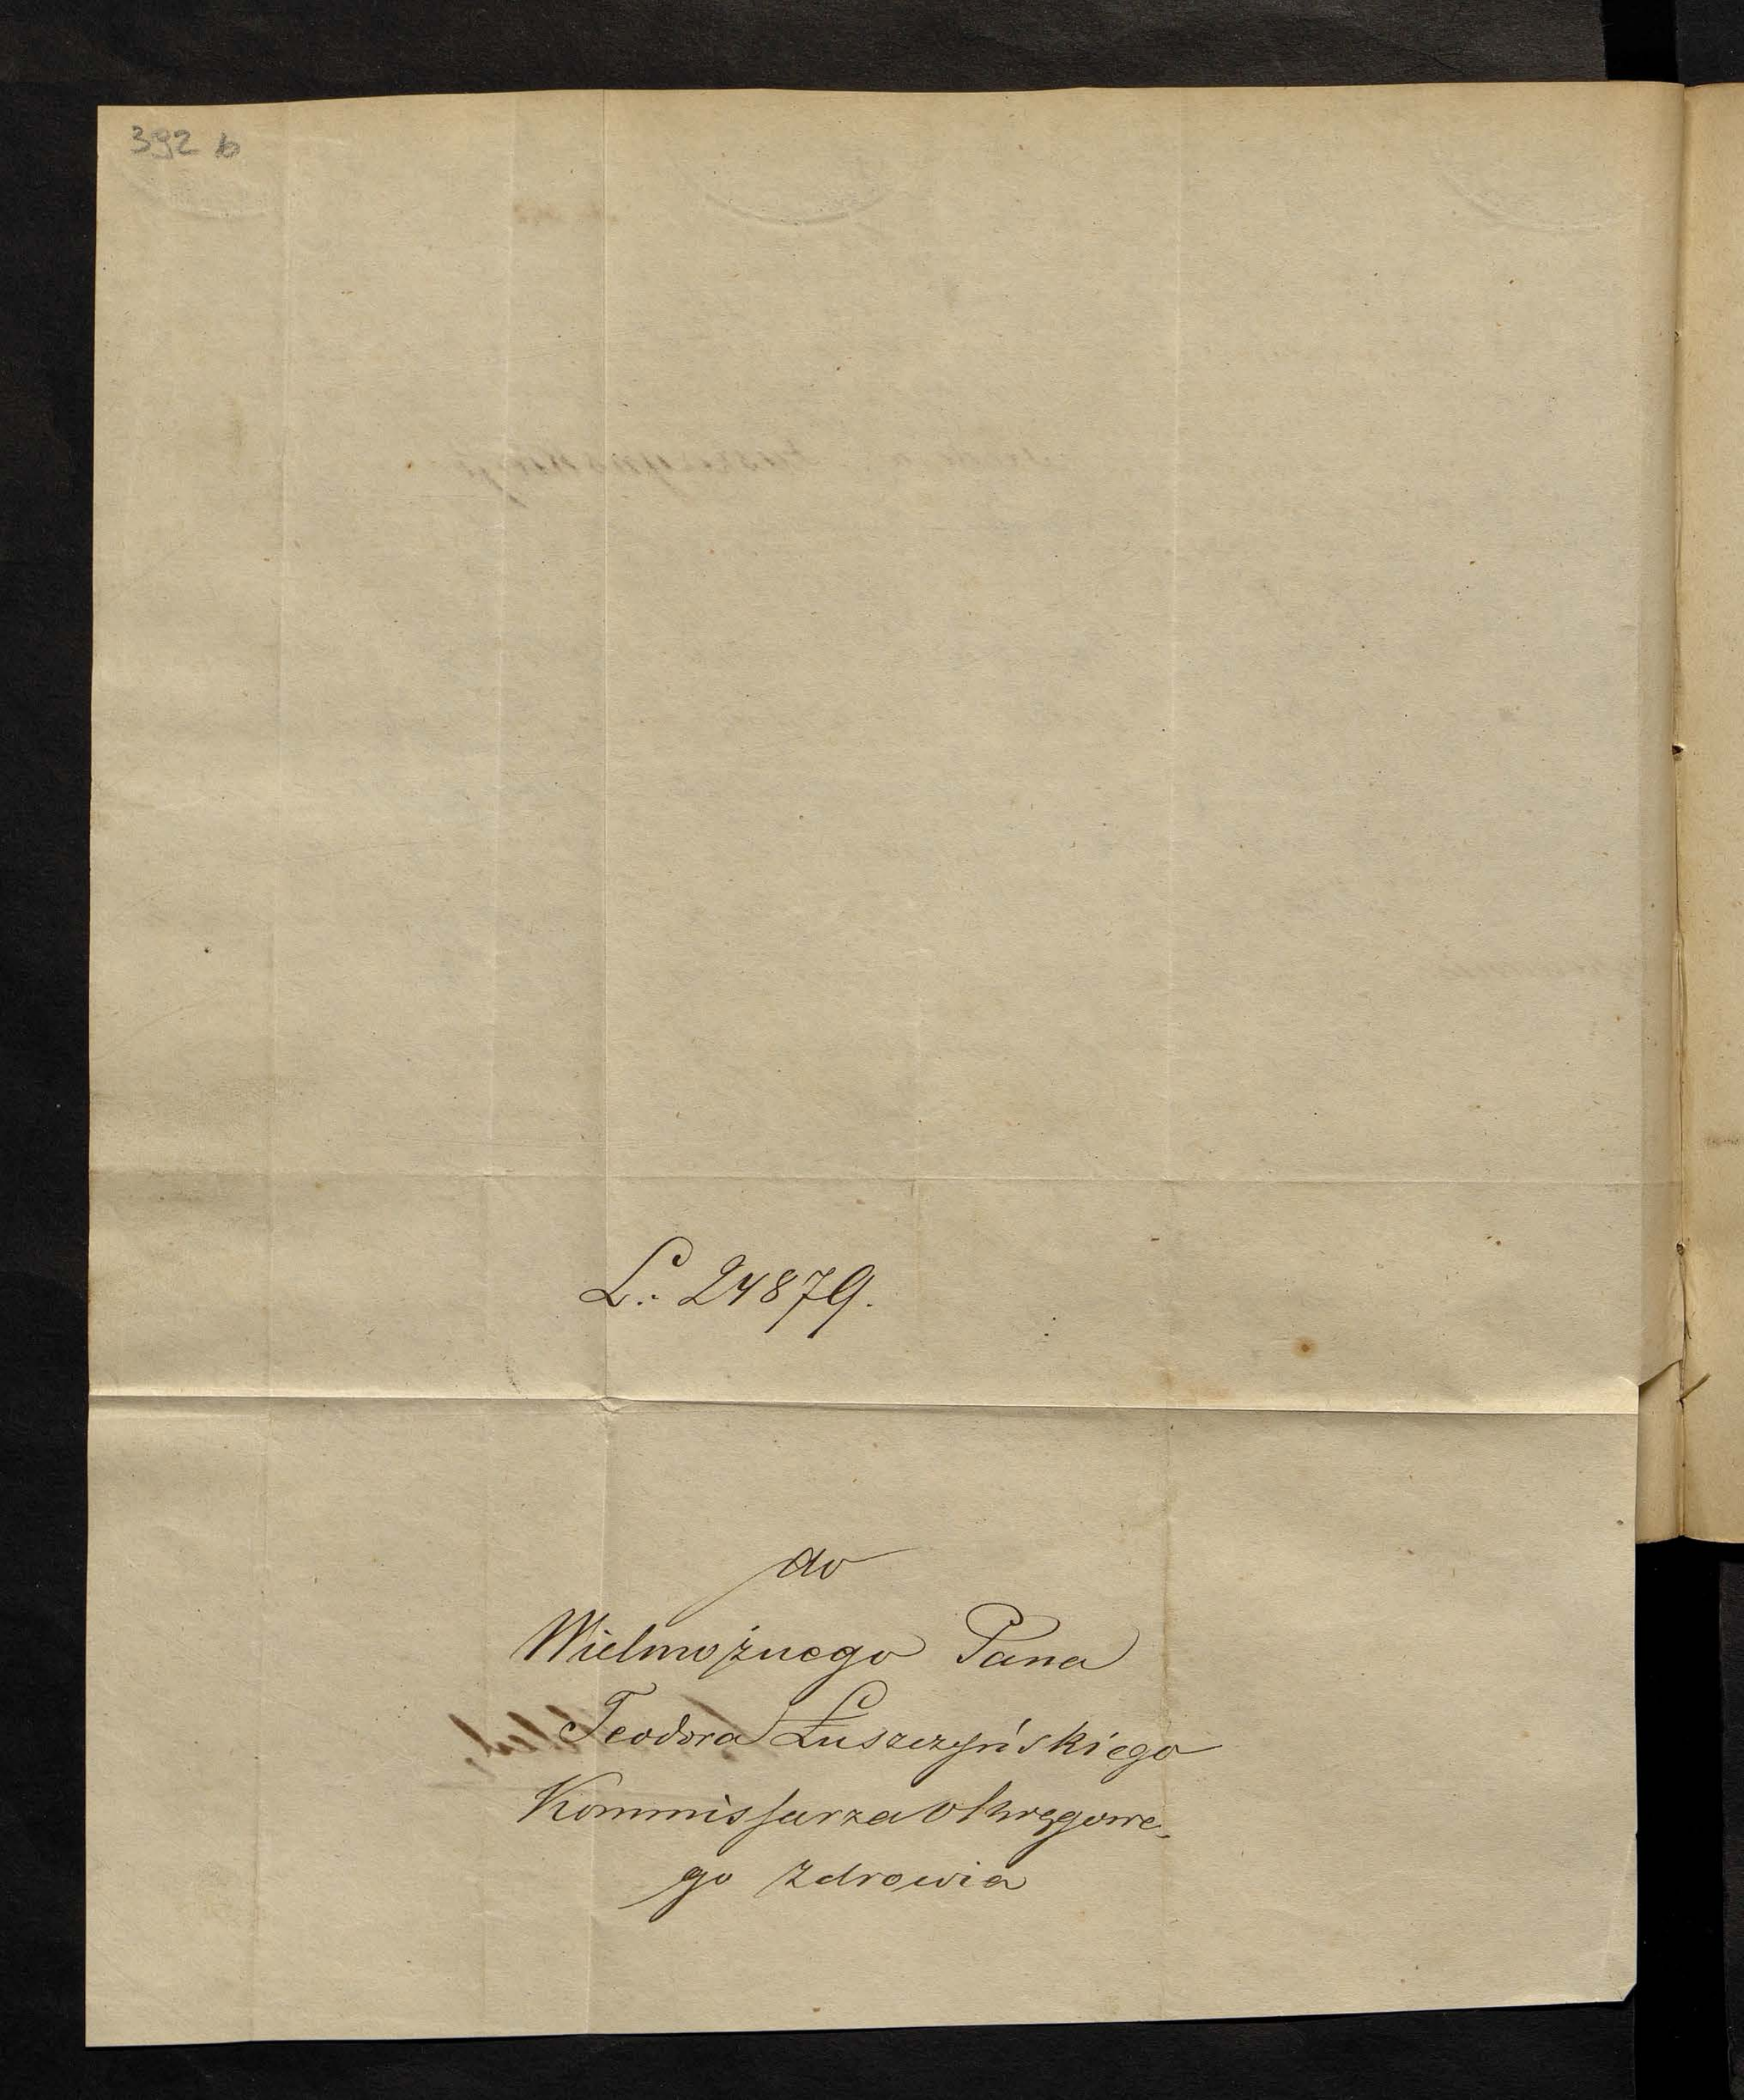 392 b
L: 24879.
do
Wielmożnego Pana
Teodora Łuszczyńskiego
Kommissarza Okręgowe-
go Zdrowia